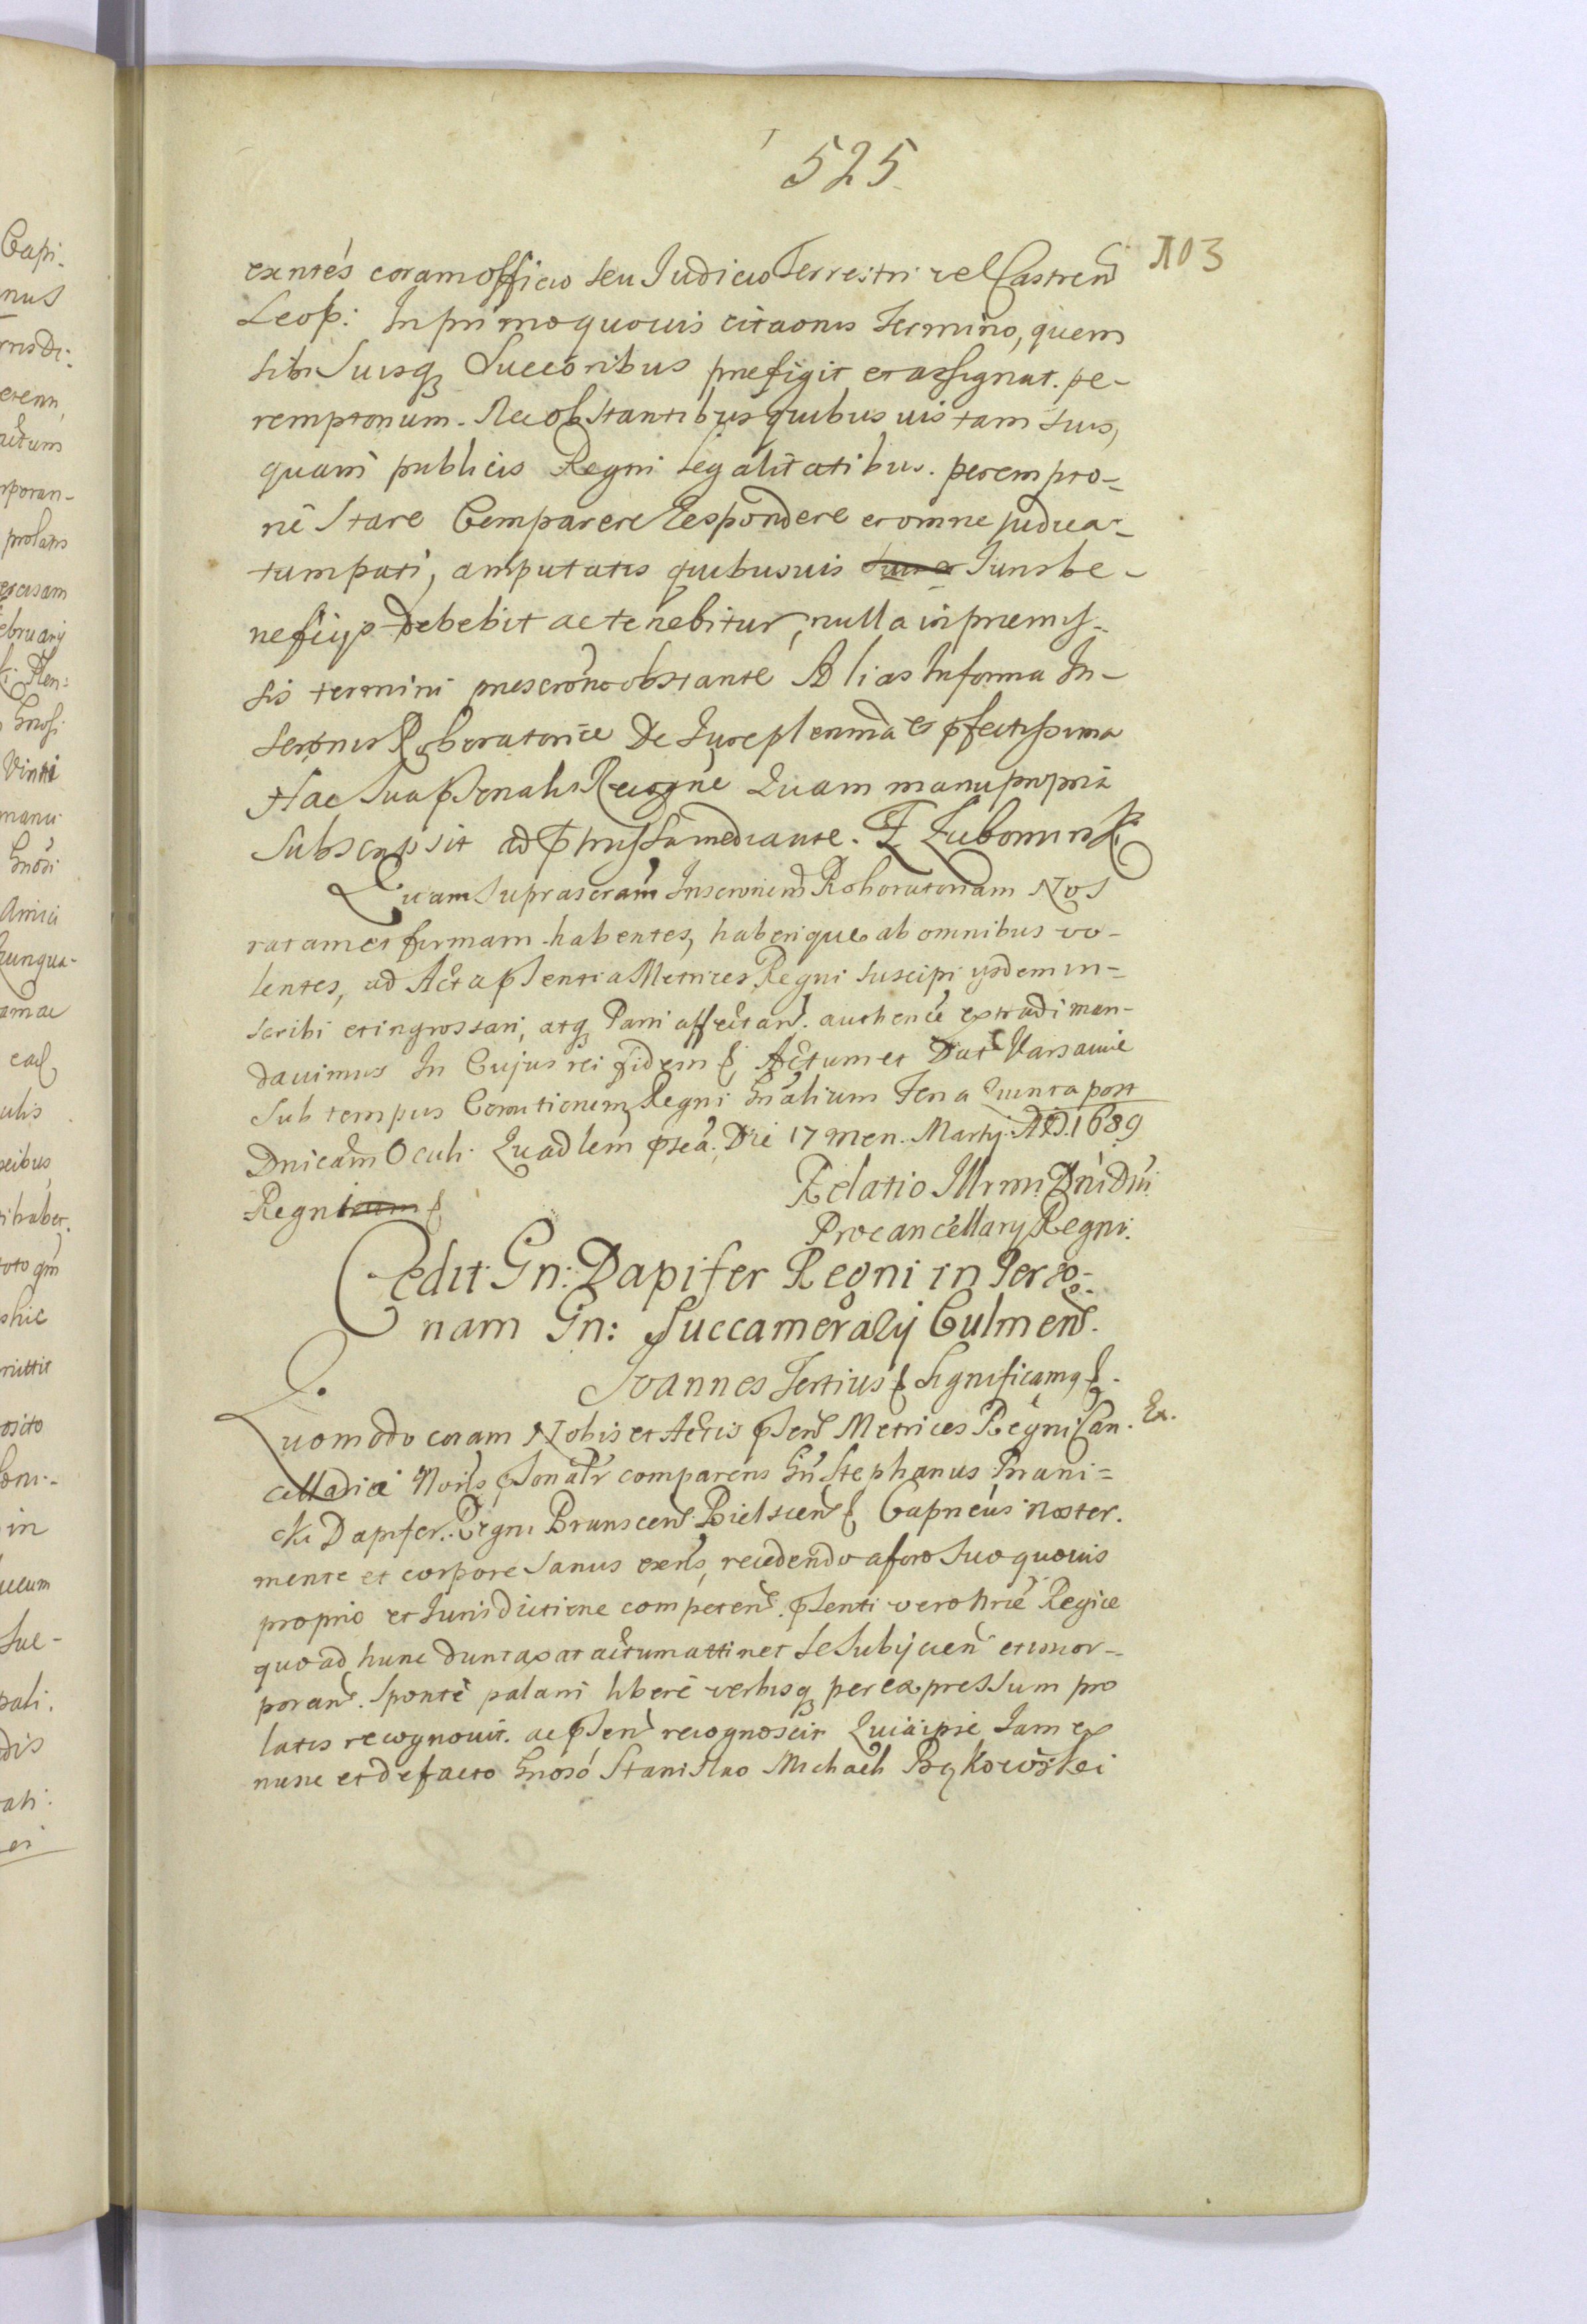 525
exntés coram officio seu Judicio Terrestri vel Castren 103
Leop: In primo quovis citaonis Termino, quem
sibi Suisq Succoribus prefigit et assignat. pe-
remptorium. Ne obstantibus quibus vis tam suis,
quam publicis Regni Legalitatibus. perempto-
rie Stare Comparere Respondere et omne judica-
tum pati, amputatis quibusvis Juris be-
neficijs debebit ac tenebitur, nulla in premis-
sis termini prescrone obstante Alias In forma In-
scronis Roboratoriæ De Jure plenma et pfectissima
Hac Sua pSonali Recogne Quam manu propria
Subscripsit ad pmissa mediante. Lubomirski
Quam Suprascram Inscronem Roboratoriam Nos
ratam et firmam habentes, haberique ab omnibus vo-
lentes, ad Acta pSentia Metrices Regni suscipi ijsdem in-
scribi et ingrossari, atq Parti affectan. authence extradi man-
davimus In Cujus rei fidem Actum et Dat Varsaviæ
Sub tempus Comitiorum Regni Gnalium Feria Quinta post
Dnicam Oculi Quadlem pxea. Die 17 Men. Martij. AD. 1689
Regni Relatio Illrmi Dni Dni
Procancellarij Regni.
Cedit Gn: Dapifer Regni in Perso-
nam Gn: Succamerarij Culmen.
Joannes Tertius Significamq
Quomodo coram Nobis et Actis pSen Metrices Regni Can. Ex.
cellariæ Noris pSonalr comparens Gn Stephanus Brani-
cki Dapifer. Regni Branscen Bielscen Capneus noster.
mente et corpore sanus exens, recedendo a foro Suo quovis
proprio et Jurisdictione competen. pSenti vero nræ Regiæ
quo ad hunc duntaxat actum attinet se Subijcien et incor-
poran. Sponte palam libere verbisq per expressum pro
latis recognovit. ac pSen recognoscit Quia ipse Jam ex
nunc et de facto Gnoso Stanislao Michaeli Bykowski